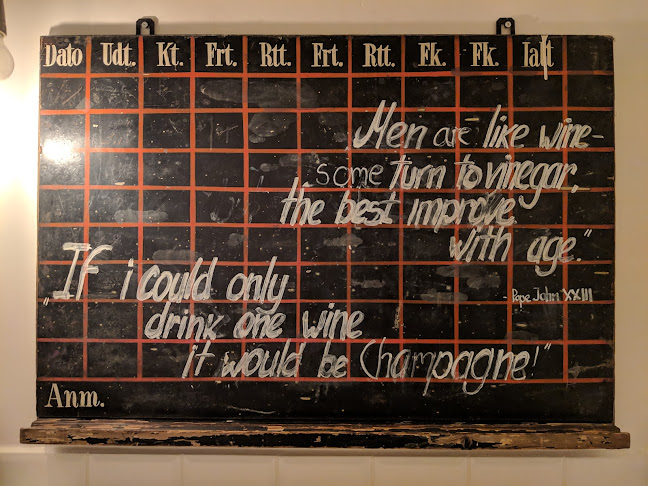 Dato Udt. Kt. Frt. Rtt. Frt. Rtt. Fk. Fk. Ialt
Men are like wine-
some turn to vinegar,
the best improve
with age."
- Pope John XXIII
„If i could only
drink one wine
it would be Champagne!"
Anm.